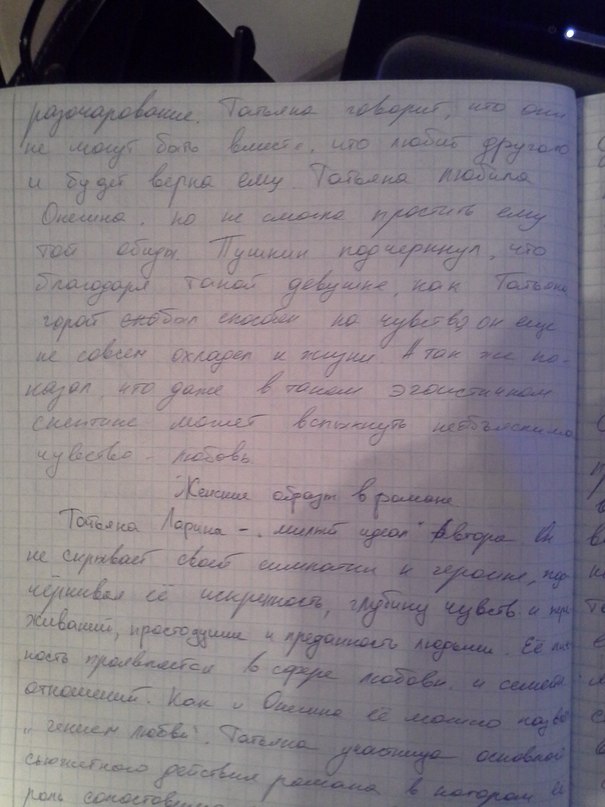 разочарование. Татьяна говорит, что они
не могут быть вместе, что любит другого
и будет верна ему. Татьяна любила
Онегина, но не смогла простить ему
той обиды. Пушкин подчеркнул, что
благодаря такой девушке, как Татьяна
герой способен на чувства, он еще
не совсем охладел к жизни. А так же по-
казал, что даже в таком эгоистичном
скептике может вспыхнуть необъяснимо
чувство - любовь
Женские образы в романе
Татьяна Ларина - "милый идеал" автора Он
не скрывает своей симпатии к героине, под
чёркивая её искренность, глубину чувств и пере
живаний, простодушие и преданность любви. Её лич
ность проявляется в сфере любви и семейн
отношений. Как и Онегина её можно назва
"гением любви". Татьяна участница основной
сюжетного действия романа в котором её
роль